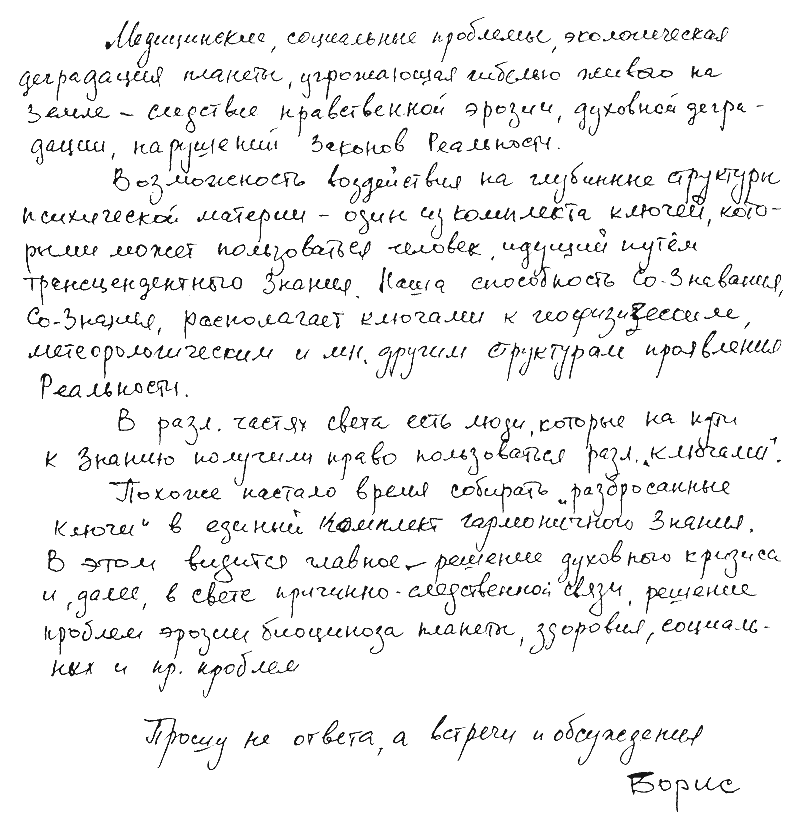 Медицинские, социальные проблемы, экологическая
деградация планеты, угрожающая гибелью живого на
Земле – следствие нравственной эрозии, духовной дегра-
дации, нарушений Законов Реальности.
Возможность воздействия на глубинные структуры
психической материи – один из комплекта ключей, кото-
рыми может пользоваться человек, идущий путём
трансцендентного Знания. Наша способность Со-Знавания,
Со-Знания, располагает ключами к геофизическим,
метеорологическим и мн. другим структурам проявления
Реальности.
В разл. частях света есть люди, которые на пути
к Знанию получили право пользоваться разл. „ключами".
Похоже настало время собирать „разбросанные
ключи" в единый комплект гармоничного Знания.
В этом видится главное – решение духовного кризиса
и, далее, в свете причинно-следственной связи, решение
проблем эрозии биоциноза планеты, здоровия, социаль-
ных и пр. проблем
Прошу не ответа, а встречи и обсуждения
Борис